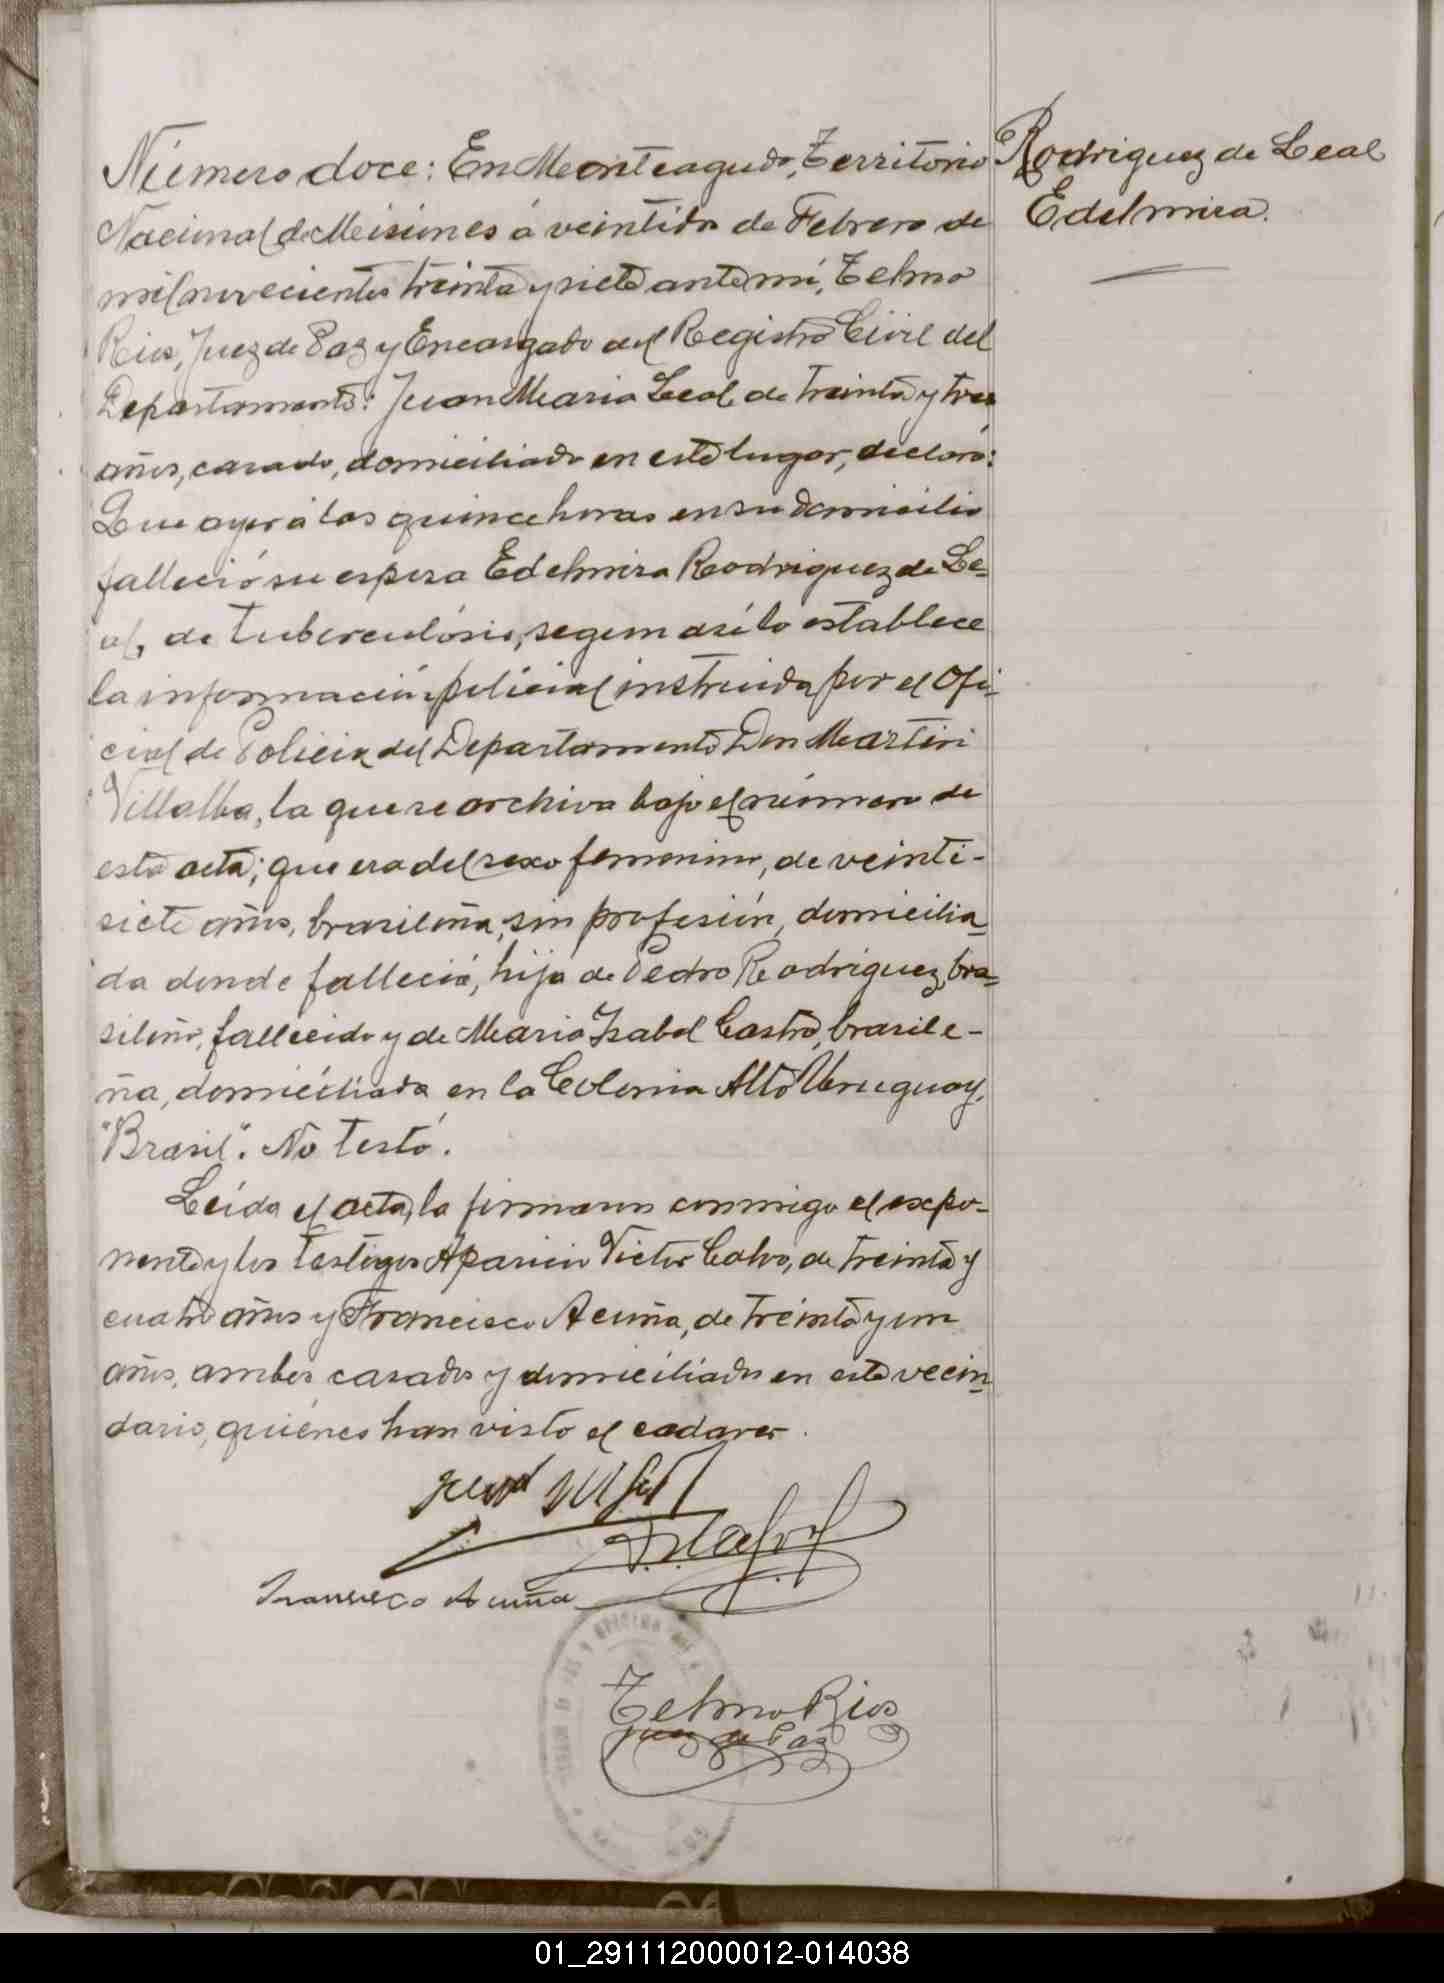 Número doce: En Monteagudo, Territorio
Nacional de Misiones á veintidos de Febrero de
mil novecientos treinta y siete ante mí, Telmo
Rios, Juez de Paz y Encargado del Registro Civil del
Departamento: Juan Maria Leal de treinta y tres
años, casado, domiciliado en este lugar, declaró:
Que ayer á las quince horas en su domicilio
falleció su esposa Edelmira Rodriguez de Le-
al, de tuberculósis, segun así lo establece
la información policial instruida por el Ofi-
cial de Policia del Departamento Don Martin
Villalba, la que se archiva bajo el número de
esta acta; que era del sexo femenino, de veinti-
siete años, brasileña, sin profesión, domicilia-
da donde falleció, hija de Pedro Rodriguez, bra-
sileño, fallecido y de Maria Isabel Castro, brasile-
ña, domiciliada en la Colonia Alto Uruguay,
"Brasil". No testó.
Leída el acta, la firmaron conmigo el expo-
nente y los testigos Aparicio Victor Calvo, de treinta y
cuatro años y Francisco Acuña, de treinta y un
años, ambos casados y domiciliados en este vecin-
dario, quiénes han visto el cadaver.
Francisco Acuña
Telmo Rios
Juez de Paz
Rodriguez de Leal
Edelmira.
01_291112000012-014038